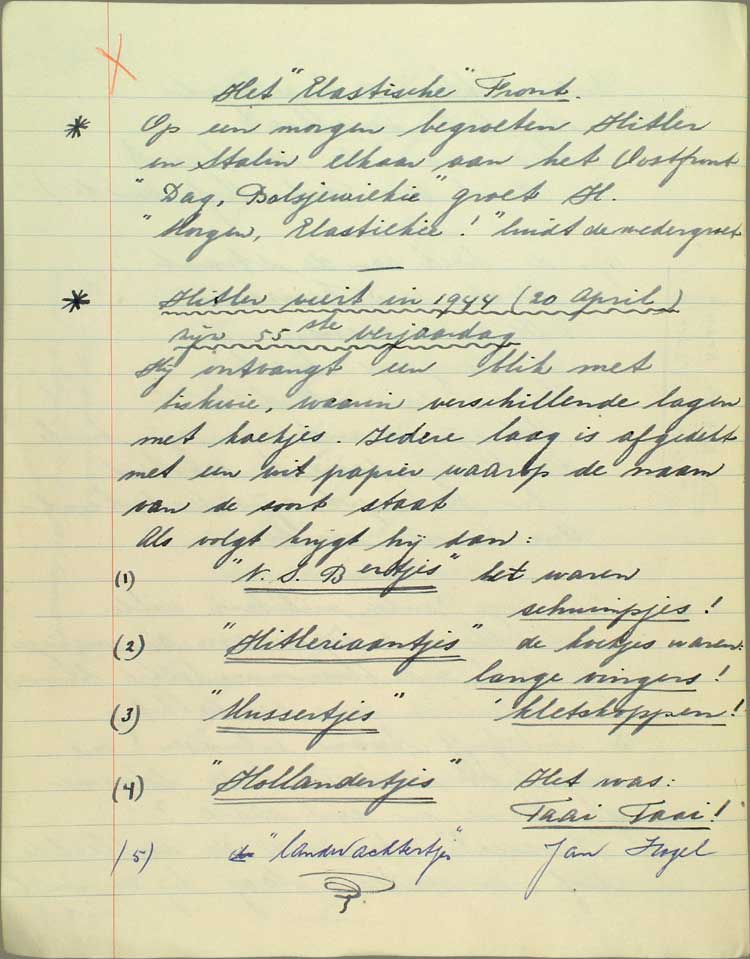 Het "Elastische" Front.
* Op een morgen begroeten Hitler
en Stalin elkaar aan het Oostfront
"Dag, Bolsjewiekie" groet H.
"Morgen, Elastiekie!" luidt de wedergroet
* Hitler viert in 1944 (20 April)
zijn 55ste verjaardag
Hij ontvangt een blik met
biskwie, waarin verschillende lagen
met koekjes. Iedere laag is afgedekt
met een wit papier waarop de naam
van de soort staat
Als volgt krijgt hij dan:
(1) "N.S.Bertjes" het waren
schuimpjes!
(2) "Hitleriaantjes" de koekjes waren:
lange vingers!
(3) "Mussertjes" " kletskoppen!
(4) "Hollandertjes" Het was:
Taai Taai!
(5) "landwachtertjes" Jan Hagel